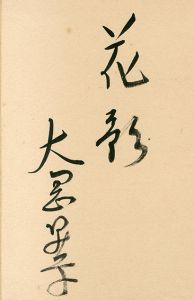 花影
大岡昇平